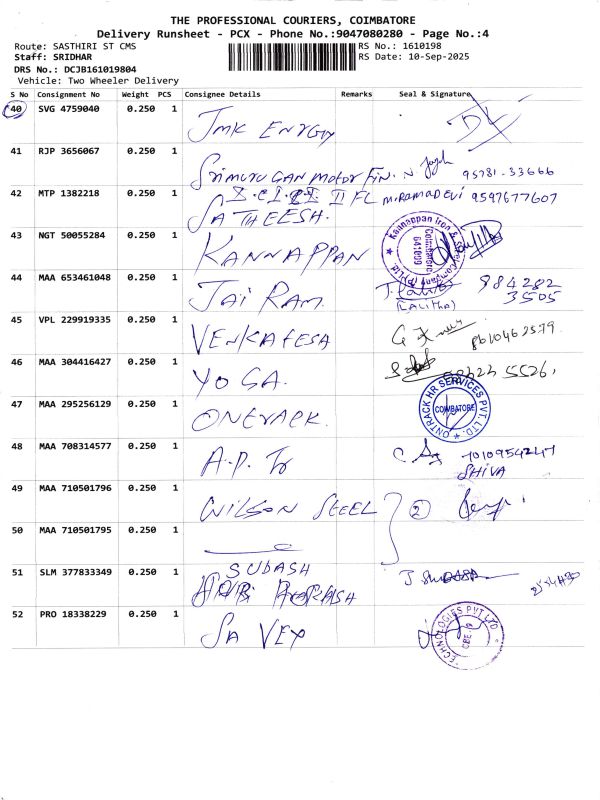 THE PROFESSIONAL COURIERS, COIMBATORE
Delivery Runsheet - PCX - Phone No.:9047080280 - Page No.:4
Route: SASTHIRI ST CMS RS No.: 1610198
Staff: SRIDHAR RS Date: 10-Sep-2025
DRS No.: DCJB161019804
Vehicle: Two Wheeler Delivery
S No Consignment No Weight PCS Consignee Details Remarks Seal & Signature
40 SVG 4759040 0.250 1 JMK ENERGY
41 RJP 3656067 0.250 1 SRIMURUGAN MOTOR FIN. N 95781-33666
42 MTP 1382218 0.250 1 II FL M.RAMADEVI 9597677607
SATHEESH.
43 NGT 50055284 0.250 1 KANNAPPAN Kannappan Iron & Coimbatore 641009
44 MAA 653461048 0.250 1 JAI RAM. (LALITHA) 984282 3505
45 VPL 229919335 0.250 1 VENKATESA 8610462579.
46 MAA 304416427 0.250 1 YOGA. 5526.
47 MAA 295256129 0.250 1 ONERACK. ONTRACK HR SERVICES PVT. LTD. COIMBATORE
48 MAA 708314577 0.250 1 A.P. Tr
SHIVA
49 MAA 710501796 0.250 1 WILSON STEEL 2
50 MAA 710501795 0.250 1
51 SLM 377833349 0.250 1 SUBASH
HARI PRAKASH
52 PRO 18338229 0.250 1 SA VEX TECHNOLOGIES PVT LTD CBE